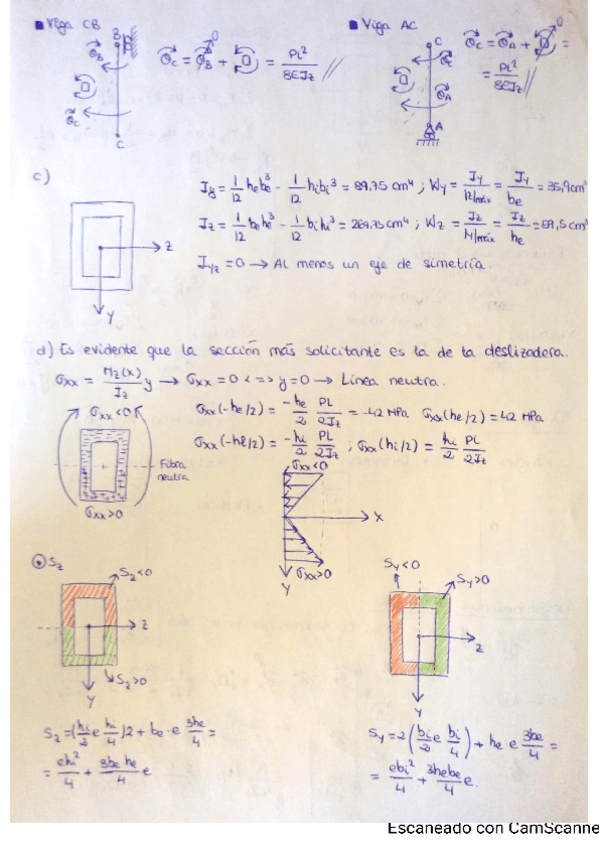 ■ Viga CB
B
θ_B
θ_C
C
θ_C = θ_B + = Pl²/8EI_z //
0
■ Viga AC
C
θ_C
θ_A
A
θ_C = θ_A + =
0
= Pl²/8EI_z //
c)
I_y = 1/12 h_e b_e³ - 1/12 h_i b_i³ = 89,75 cm⁴ ; W_y = I_y/|z|máx = I_y/b_e = 35,9 cm³
I_z = 1/12 b_e h_e³ - 1/12 b_i h_i³ = 269,75 cm⁴ ; W_z = I_z/|y|máx = I_z/h_e = 89,5 cm³
I_yz = 0 → Al menos un eje de simetría.
z
y
d) Es evidente que la sección más solicitante es la de la deslizadera.
σxx = M_z(x)/I_z y → σxx = 0 <=> y = 0 → Línea neutra.
σxx(-h_e/2) = -h_e/2 PL/2I_z = -42 MPa σxx(h_e/2) = 42 MPa
σxx(-h_i/2) = -h_i/2 PL/2I_z ; σxx(h_i/2) = h_i/2 PL/2I_z
σxx<0
Fibra
neutra
σxx>0
σxx<0
x
σxx>0
y
S_z
S_z<0
z
S_z>0
y
S_y<0
S_y>0
z
y
S_z = (h_i/2 e h_i/4)2 + b_e · e 3h_e/4 =
= eh_i²/4 + 3b_e h_e/4 e
S_y = 2(b_i/2 e b_i/4) + h_e e 3b_e/4 =
= eb_i²/4 + 3h_e b_e/4 e.
Escaneado con CamScanne